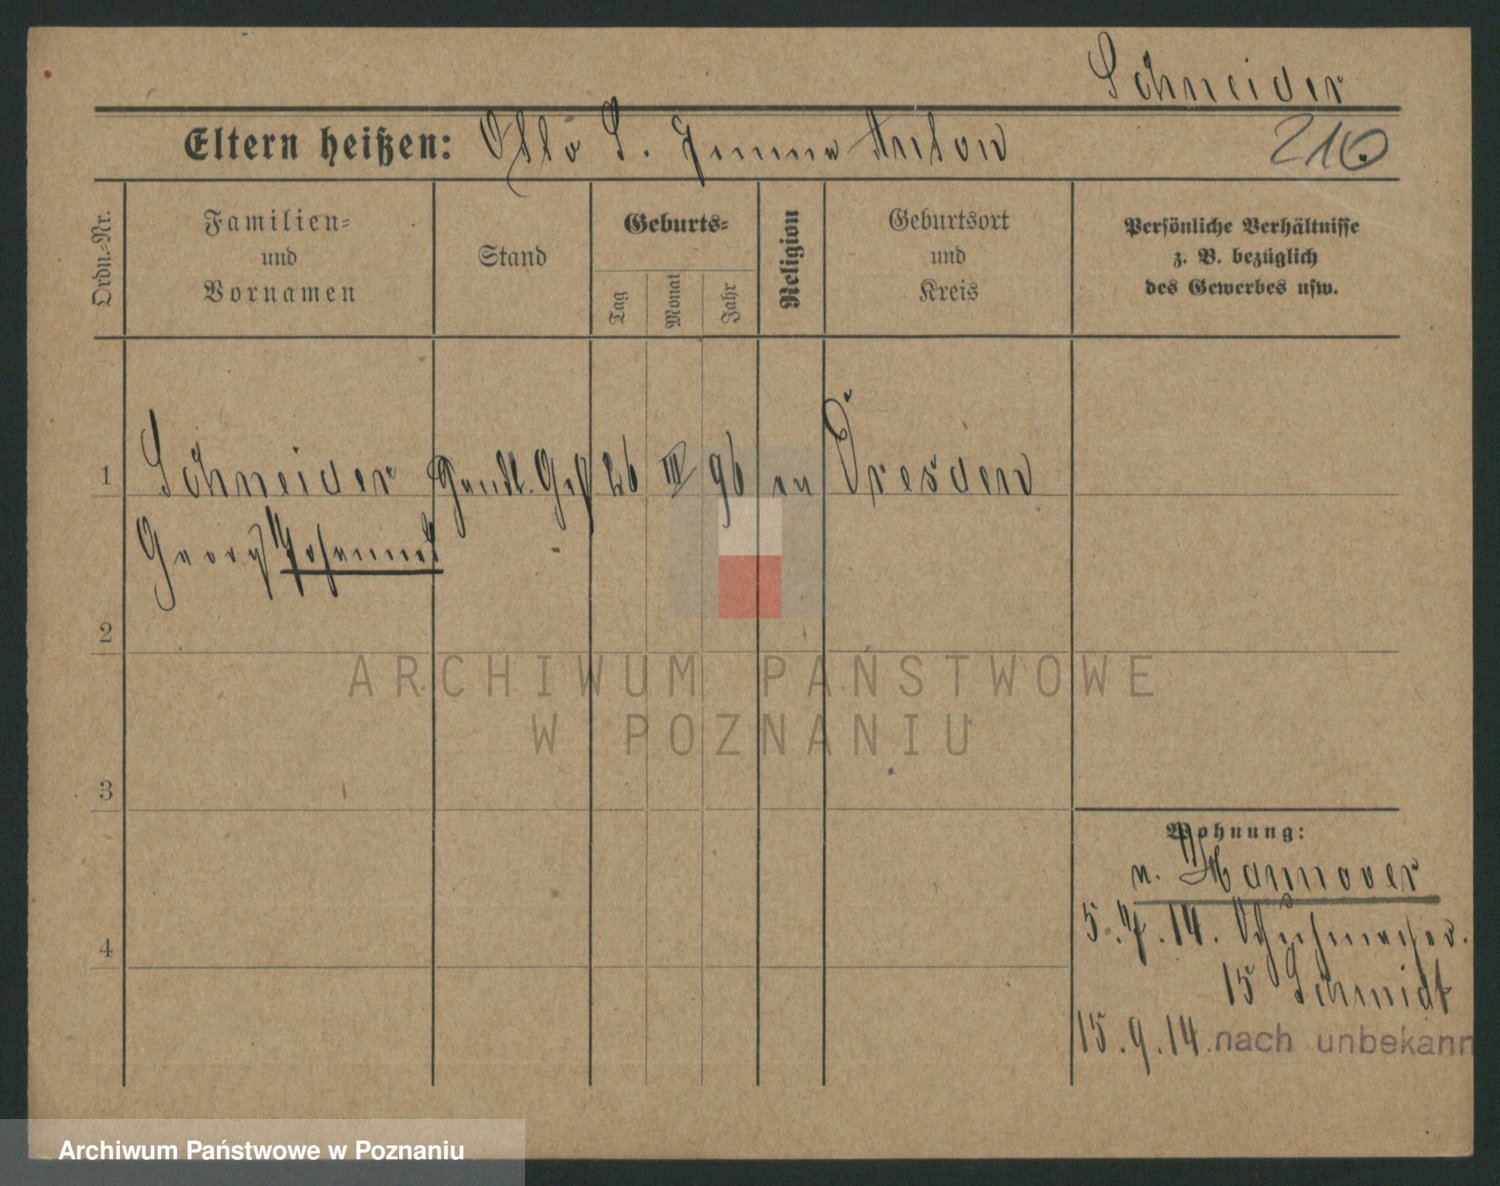 Schneider
Eltern heißen: Otto S. Emma Anton
210
Ordn.-Nr.
Familien-
und
Vornamen
Stand
Geburts-
Tag
Monat
Jahr
Religion
Geburtsort
und
Kreis
Persönliche Verhältnisse
z. B. bezüglich
des Gewerbes usw.
1 Schneider Handl. Geh 26 III 96 ev Dresden
Georg Johannes
2
3
4
ARCHIWUM PAŃSTWOWE
W POZNANIU
Wohnung:
v. Hannover
5.7.14.
15 Schmidt
15.9.14. nach unbekann
Archiwum Państwowe w Poznaniu